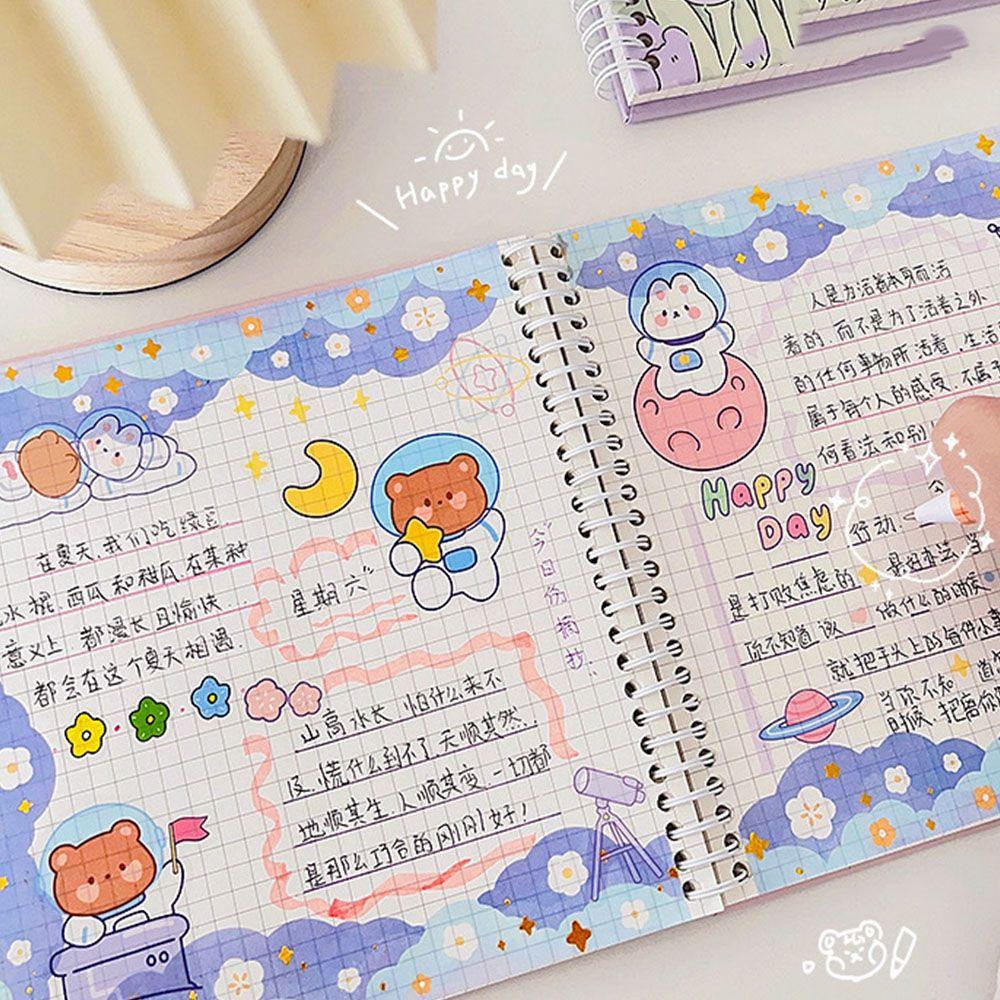 Happy day
在夏天.我们吃绿豆.
水棍.西瓜和甜瓜.在某种
意义上.都漫长且愉快...
都会在这个夏天相遇.
星期六"
今日份摘抄..
山高水长.怕什么来不
及.慌什么到不了.天顺其然..
地顺其生.人顺其变.一切都
是那么巧合的刚刚好!
人是为活着本身而活
着的.而不是为了活着之外
的任何事物所活着.生活
属于每个人的感受.不属于
何看法和别
Happy
Day
行动
是打败焦虑的 是好办法.当
你不知道该 做什么的时候
就把手头上的每件小事
当你不知道
时候.把